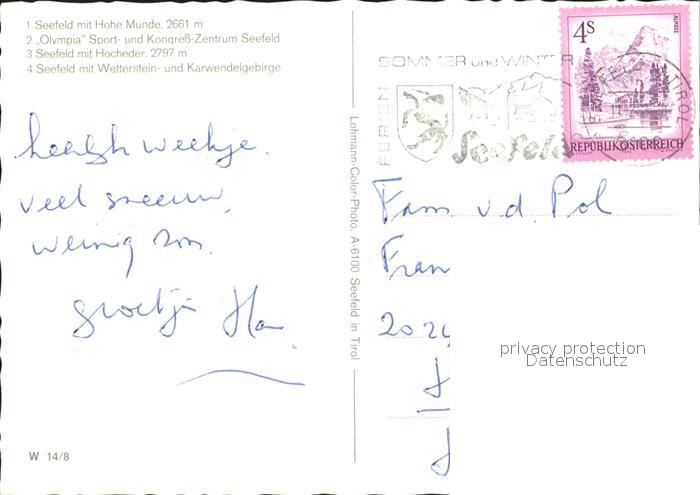 1 Seefeld mit Hohe Munde. 2661 m
2 „Olympia" Sport- und Kongreß-Zentrum Seefeld
3 Seefeld mit Hocheder. 2797 m
4 Seefeld mit Wetterstein- und Karwendelgebirge
heerlijk weekje.
veel sneeuw,
weinig zon.
groetjes
W 14/8
Lohmann-Color-Photo, A-6100 Seefeld in Tirol
FERIEN
SOMMER und WINTER
Seefeld
TIROL
4S
ALMSEE
REPUBLIK ÖSTERREICH
Fam v.d. Pol
Fran
202
privacy protection
Datenschutz